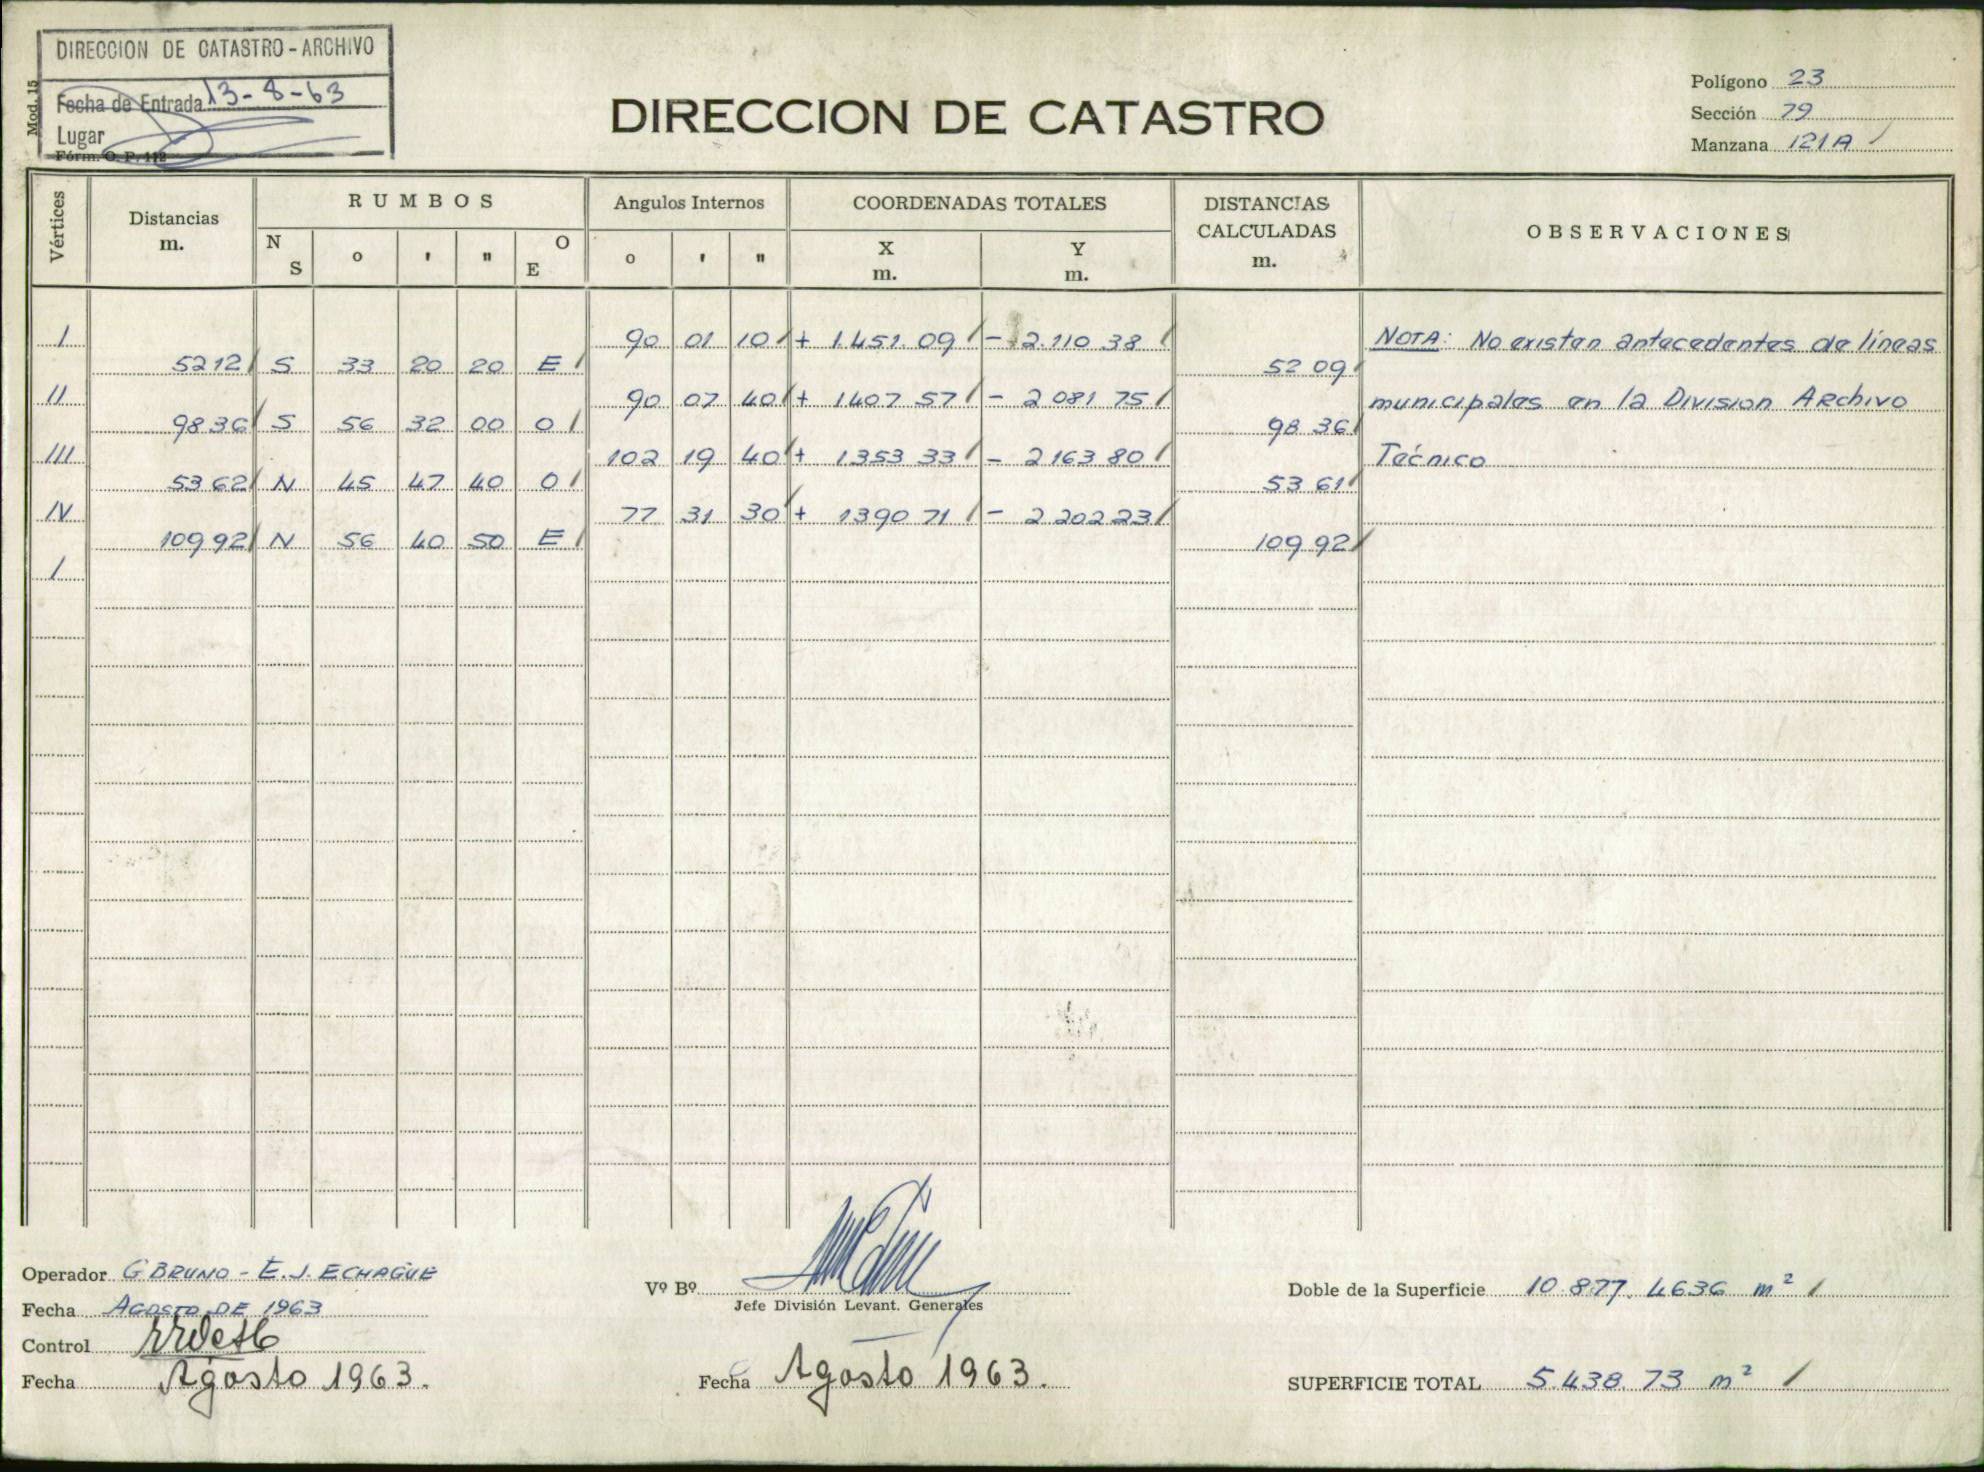 DIRECCION DE CATASTRO - ARCHIVO
Fecha de Entrada 13-8-63
Lugar
Fórm. O. P. 112
Mod. 15
DIRECCION DE CATASTRO
Polígono 23
Sección 79
Manzana 121A /
Vértices Distancias m. RUMBOS Angulos Internos COORDENADAS TOTALES DISTANCIAS CALCULADAS m. OBSERVACIONES
N S o ' " O E o ' " X m. Y m.
I 90 01 10 / + 1.451.09 / - 2.110 38 / NOTA: No existen antecedentes de líneas
52 12 / S 33 20 20 E / 52 09 /
II 90 07 40 / + 1407 57 / - 2 081 75 / municipales en la Division Archivo
98 36 / S 56 32 00 O / 98 36 /
III 102 19 40 / + 1353 33 / - 2 163 80 / Técnico
53 62 / N 45 47 40 O / 53 61 /
IV 77 31 30 / + 1390 71 / - 2 202 23 /
109 92 / N 56 40 50 E / 109 92 /
I
Operador G BRUNO - E. J. ECHAGÜE
Fecha AGOSTO DE 1963
Control
Fecha Agosto 1963.
Vº Bº
Jefe División Levant. Generales
Fecha Agosto 1963.
Doble de la Superficie 10.877. 4636 m² /
SUPERFICIE TOTAL 5.438. 73 m² /